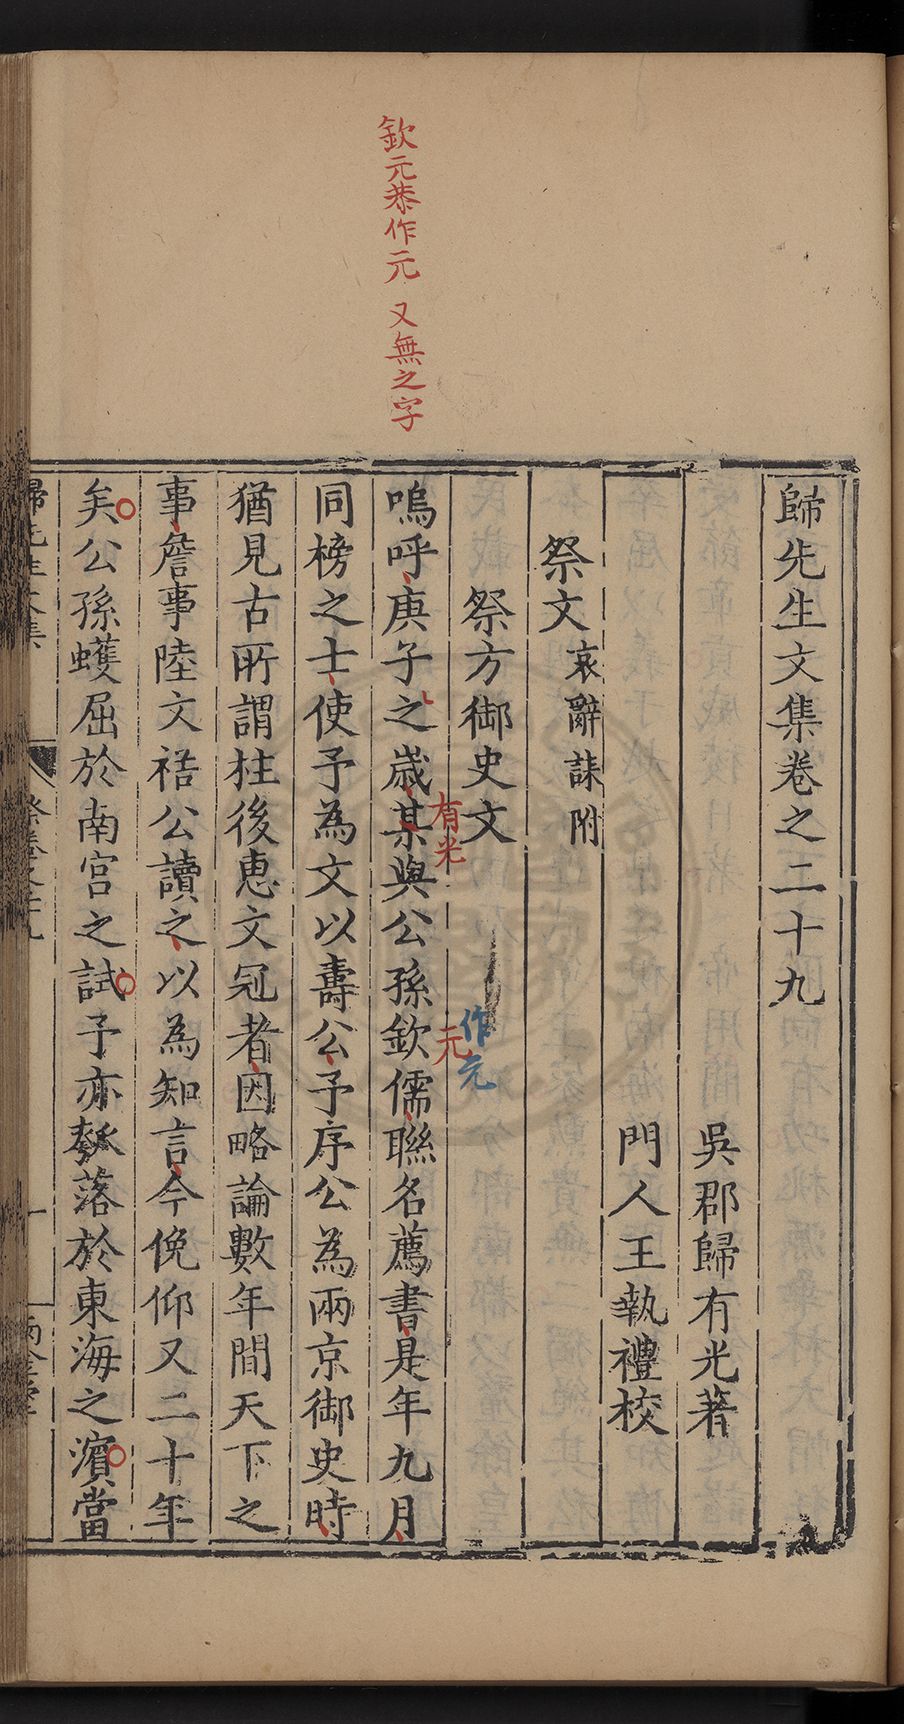 欽元恭作元 又無之字
歸先生文集卷之二十九
吳郡歸有光著
門人王執禮校
祭文 哀辭誄附
祭方御史文
作元
有光
元
嗚呼庚子之歲某與公孫欽儒聯名薦書是年九月
同榜之士使予為文以壽公予序公為兩京御史時
猶見古所謂柱後惠文冠者因略論數年間天下之
事詹事陸文裕公讀之以為知言今俛仰又二十年
矣公孫蠖屈於南宮之試予亦瓠落於東海之濵當
歸先生文集